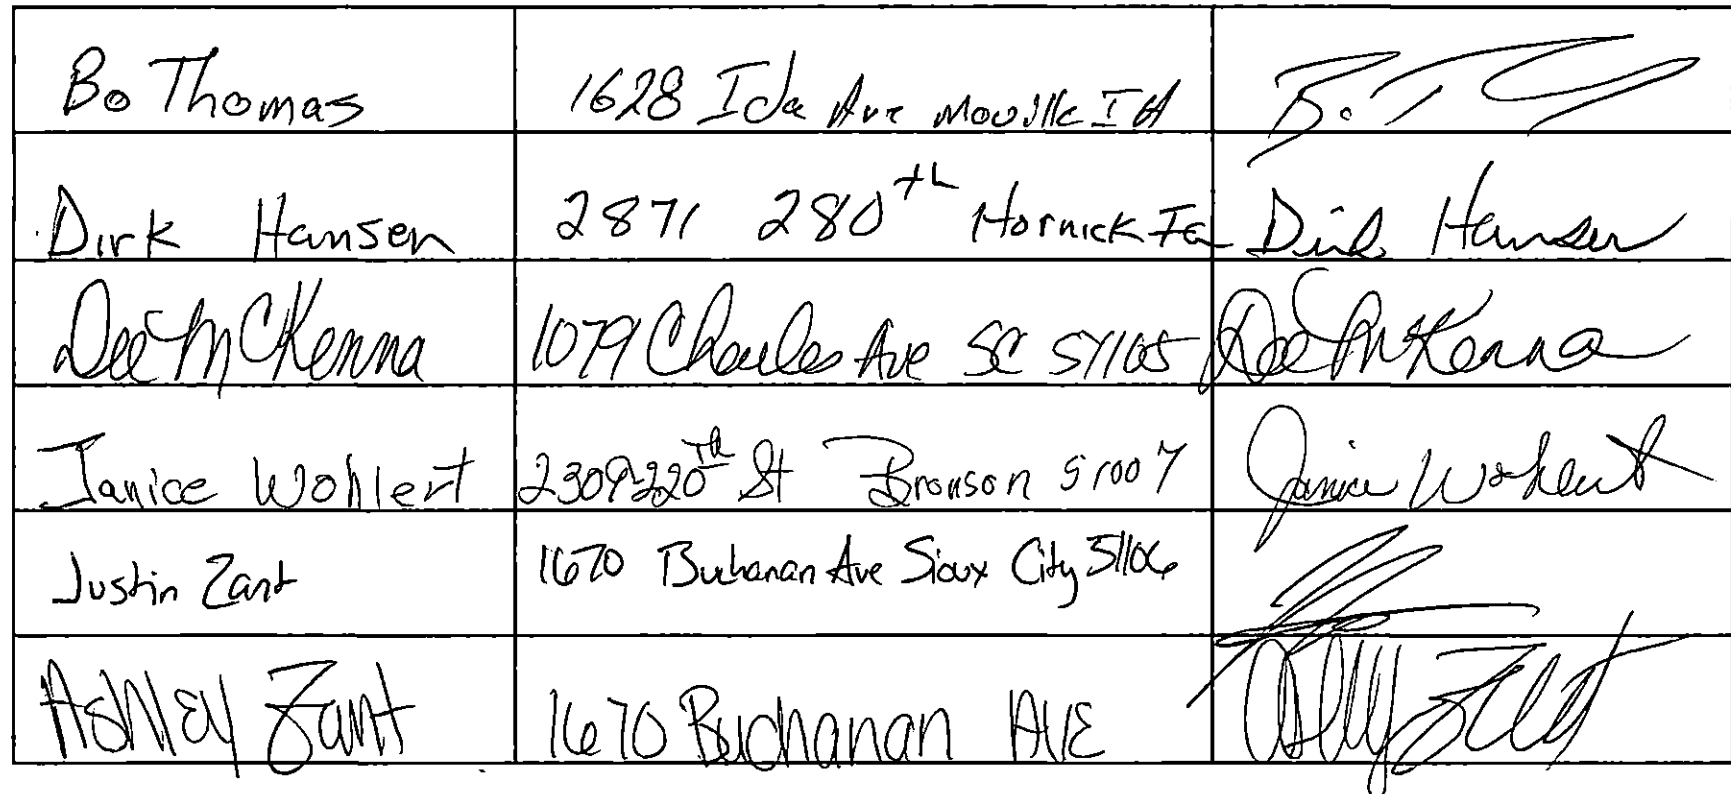 Bo Thomas 1628 Ida Ave Moville IA B. T
Dirk Hansen 2871 280th Hornick Ia Dirk Hansen
Dee McKenna 1079 Charles Ave SC 51105 Dee McKenna
Janice Wohlert 2309-220th St Bronson 51007 Janice Wohlert
Justin Zant 1670 Buchanan Ave Sioux City 51106
Ashley Zant 1670 Buchanan AVE Ashley Zant